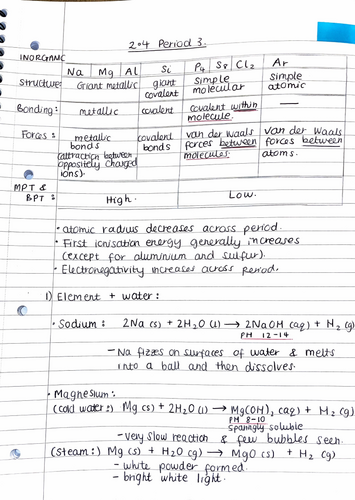 2.4 Period 3.
INORGANIC
Na Mg Al Si P4 S8 Cl2 Ar
Structure: Giant metallic giant covalent simple molecular simple atomic
Bonding: metallic covalent covalent within molecule. —
Forces: metallic bonds (attraction between oppositely charged ions). covalent bonds van der waals forces between molecules. van der waals forces between atoms.
MPT & BPT: High. Low.
• atomic radius decreases across period.
• First ionisation energy generally increases
(except for aluminium and sulfur).
• Electronegativity increases across period.
1) Element + water:
• Sodium: 2Na (s) + 2H2O (l) → 2NaOH (aq) + H2 (g)
PH 12-14
– Na fizzes on surfaces of water & melts
into a ball and then dissolves.
• Magnesium:
(cold water:) Mg (s) + 2H2O (l) → Mg(OH)2 (aq) + H2 (g)
PH 8-10
sparingly soluble
– very slow reaction & few bubbles seen.
(steam:) Mg (s) + H2O (g) → MgO (s) + H2 (g)
– white powder formed.
– bright white light.